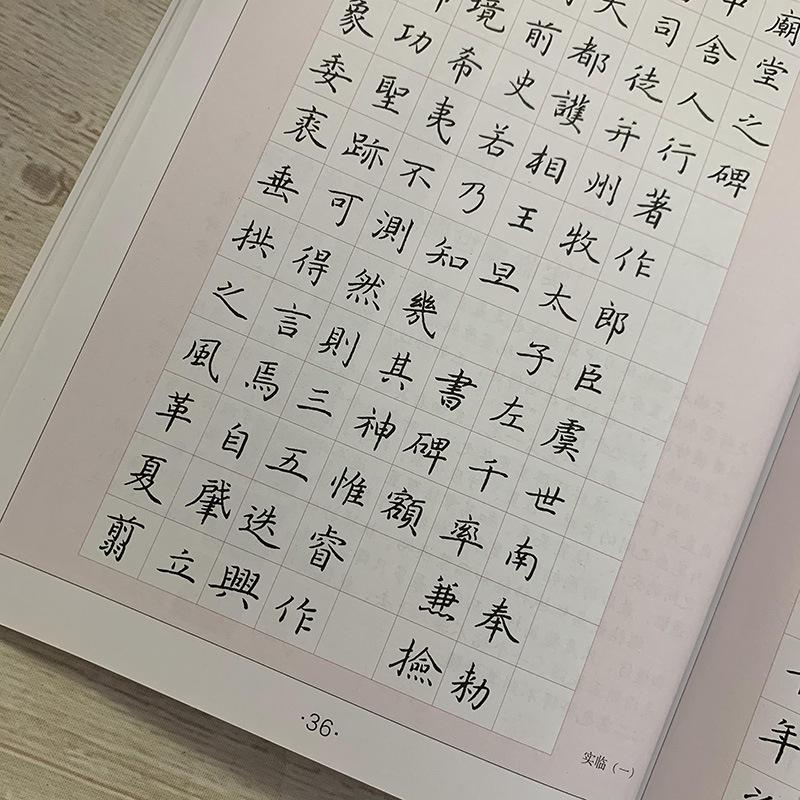 廟堂之碑
中舍人行著作郎臣虞世南奉勑
司徒并州牧太子左千率兼撿
大都護相王旦 書碑額
前史若乃知幾其神惟睿作
境希夷不測然則三五迭興
功聖跡可得言焉自肇立
象委裘垂拱之風革夏翦
·36·
实临（一）
年